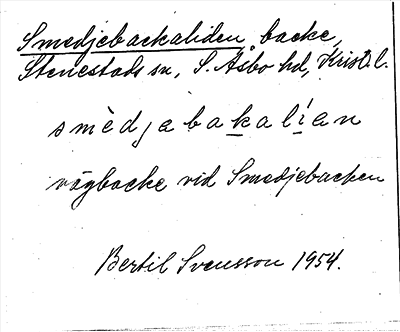 Smedjebackaliden, backe,
Stenestads sn, S. Åsbo hd, Krist. l.
smèdjabakalían
vägbacke vid Smedjebacken
Bertil Svensson 1954.